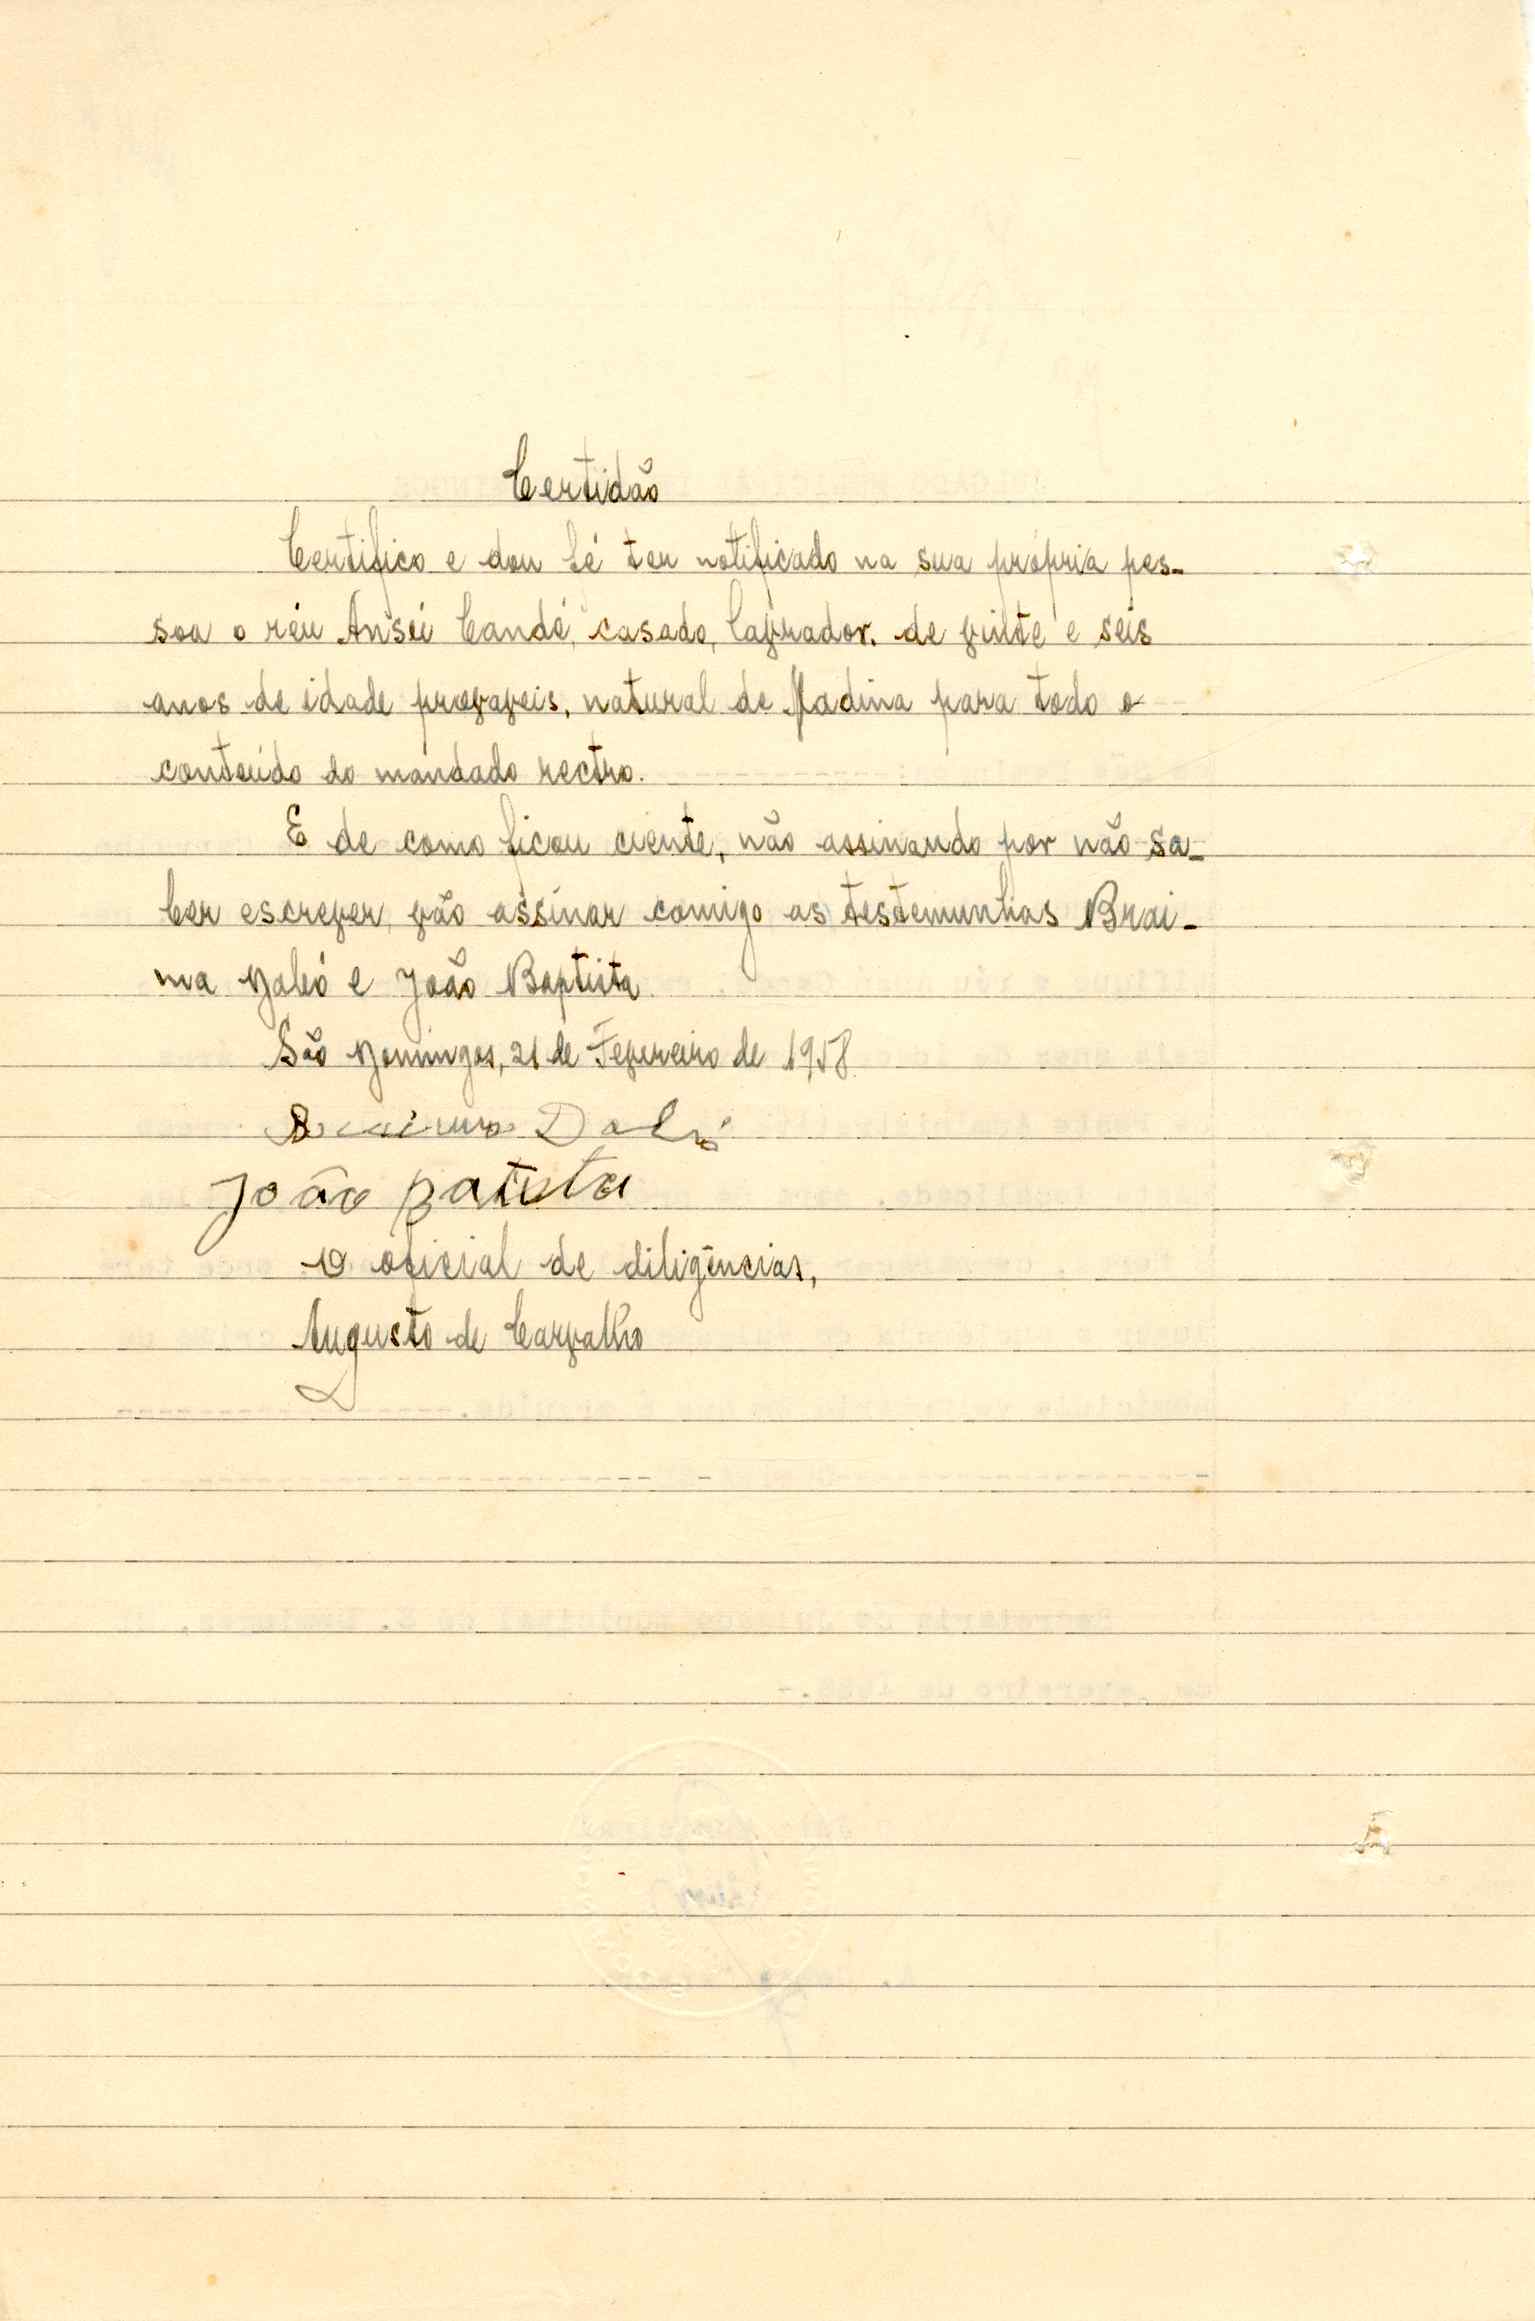 Certidão
Certifico e dou fé ter notificado na sua própria pes-
soa o réu Ansúi Candé, casado, lavrador, de vinte e seis
anos de idade prováveis, natural de Madina para todo o
conteúdo do mandado rectro.
E de como ficou ciente, não assinando por não sa-
ber escrever, vão assinar comigo as testemunhas Brai-
ma Dabó e João Baptista
São Domingos, 21 de Fevereiro de 1958
Braima Dabó
João Batista
O oficial de diligências,
Augusto de Carvalho